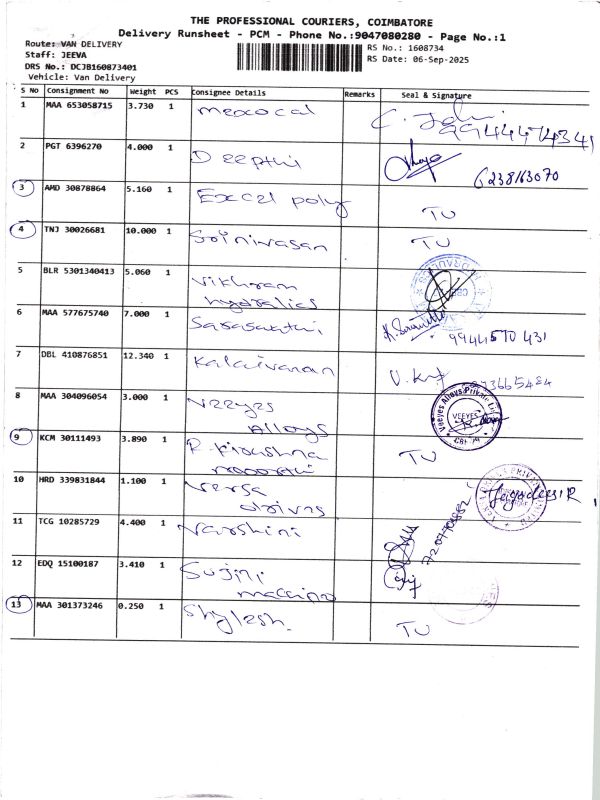 THE PROFESSIONAL COURIERS, COIMBATORE
Delivery Runsheet - PCM - Phone No.:9047080280 - Page No.:1
Route: VAN DELIVERY
RS No.: 1608734
Staff: JEEVA
RS Date: 06-Sep-2025
DRS No.: DCJB160873401
Vehicle: Van Delivery
S No Consignment No Weight PCS Consignee Details Remarks Seal & Signature
1 MAA 653058715 3.730 1 mexocal
2 PGT 6396270 4.000 1 Deepthi 6238163070
3 AMD 30878864 5.160 1 Excel poly TU
4 TNJ 30026681 10.000 1 Srinivasan TU
5 BLR 5301340413 5.060 1 Vikhram
hydralics
6 MAA 577675740 7.000 1 Saraswathi
7 DBL 410876851 12.340 1 Kalaivanan
8 MAA 304096054 3.000 1 Veeyes
Alloys Veeyes Alloys Private VEEYES
9 KCM 30111493 3.890 1 R. Krishna
moorthi TU
10 HRD 339831844 1.100 1 Versa
drives
11 TCG 10285729 4.400 1 Varshini
12 EDQ 15100187 3.410 1 Sujini
13 MAA 301373246 0.250 1 Shylesh. TU